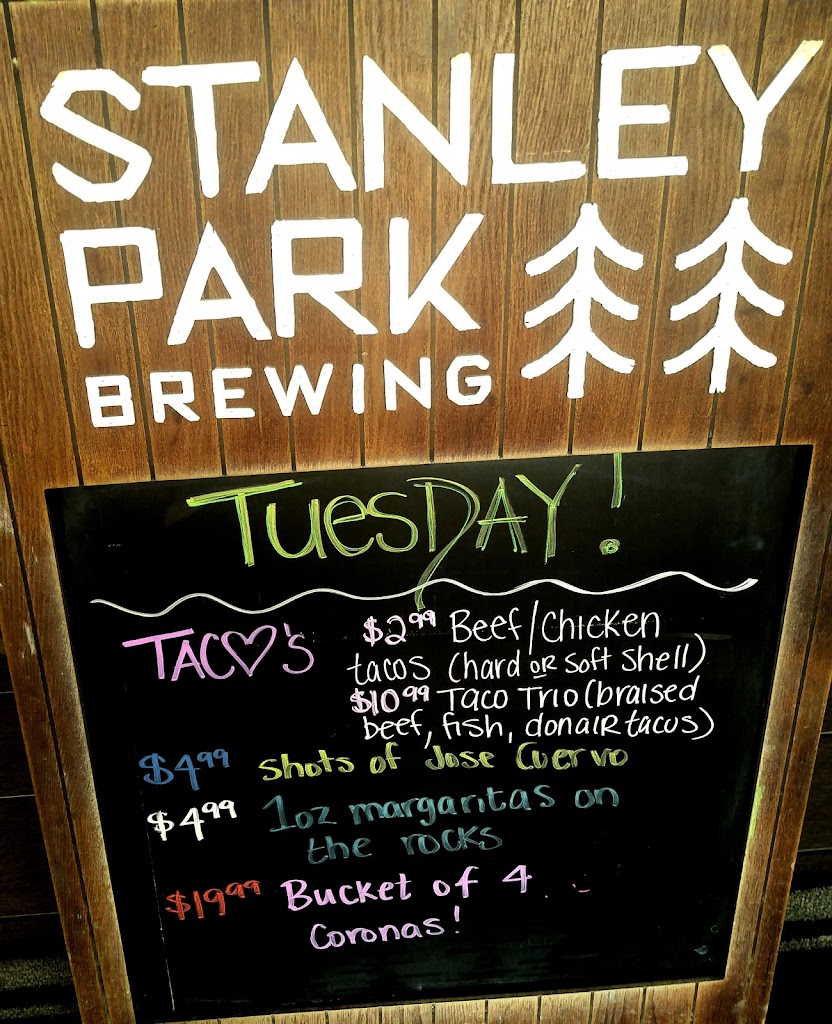 STANLEY
PARK
BREWING
TuesDAY!
TACO's $2.99 Beef/Chicken
tacos (hard or soft shell)
$10.99 Taco Trio (braised
beef, fish, donair tacos)
$4.99 shots of Jose Cuervo
$4.99 1oz margaritas on
the rocks
$19.99 Bucket of 4
Coronas!